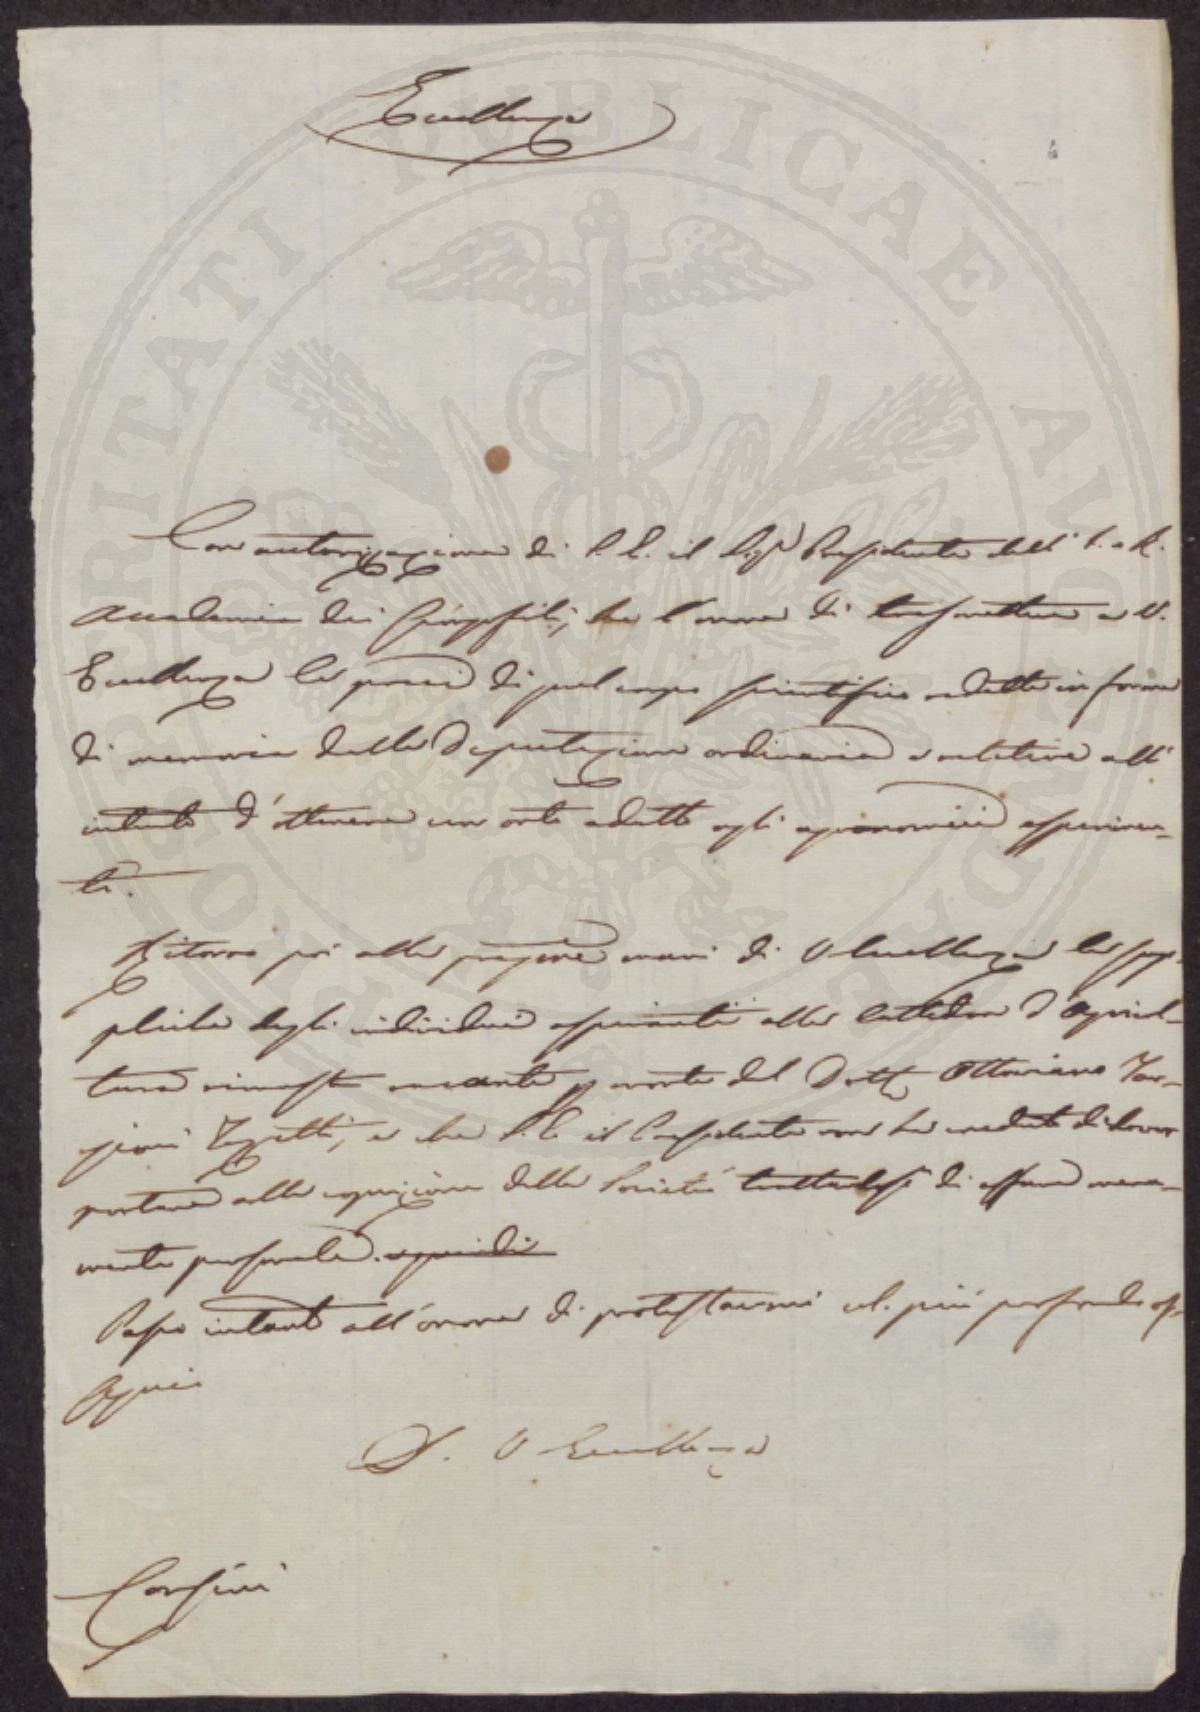 Eccellenza
Con autorizzazione di S. E. il Sig.r Presidente dell' I. e R.
Accademia dei Georgofili, ho l'onore di trasmettere a V.
Eccellenza le preci di quel corpo scientifico redatte in forma
di memoria dalla Deputazione ordinaria e relative all'
intento d'ottenere un orto adatto agli agronomici esperimen-
ti.
Ritorno poi alle pregiate mani di V Eccellenza le sup-
pliche degli individui aspiranti alla Cattedra d'Agricol-
tura rimasta vacante p morte del Dott. Ottaviano Tar-
gioni Tozzetti, e che S. E. il Presidente non ha creduto di dover
portare alla cognizione della Società trattandosi di affare mera-
mente personale. e quindi
Passo intanto all'onore di protestarmi col più profondo os-
sequio
D. V Eccellenza
Corsini
PROSPERITATI PUBLICAE AUGENDAE